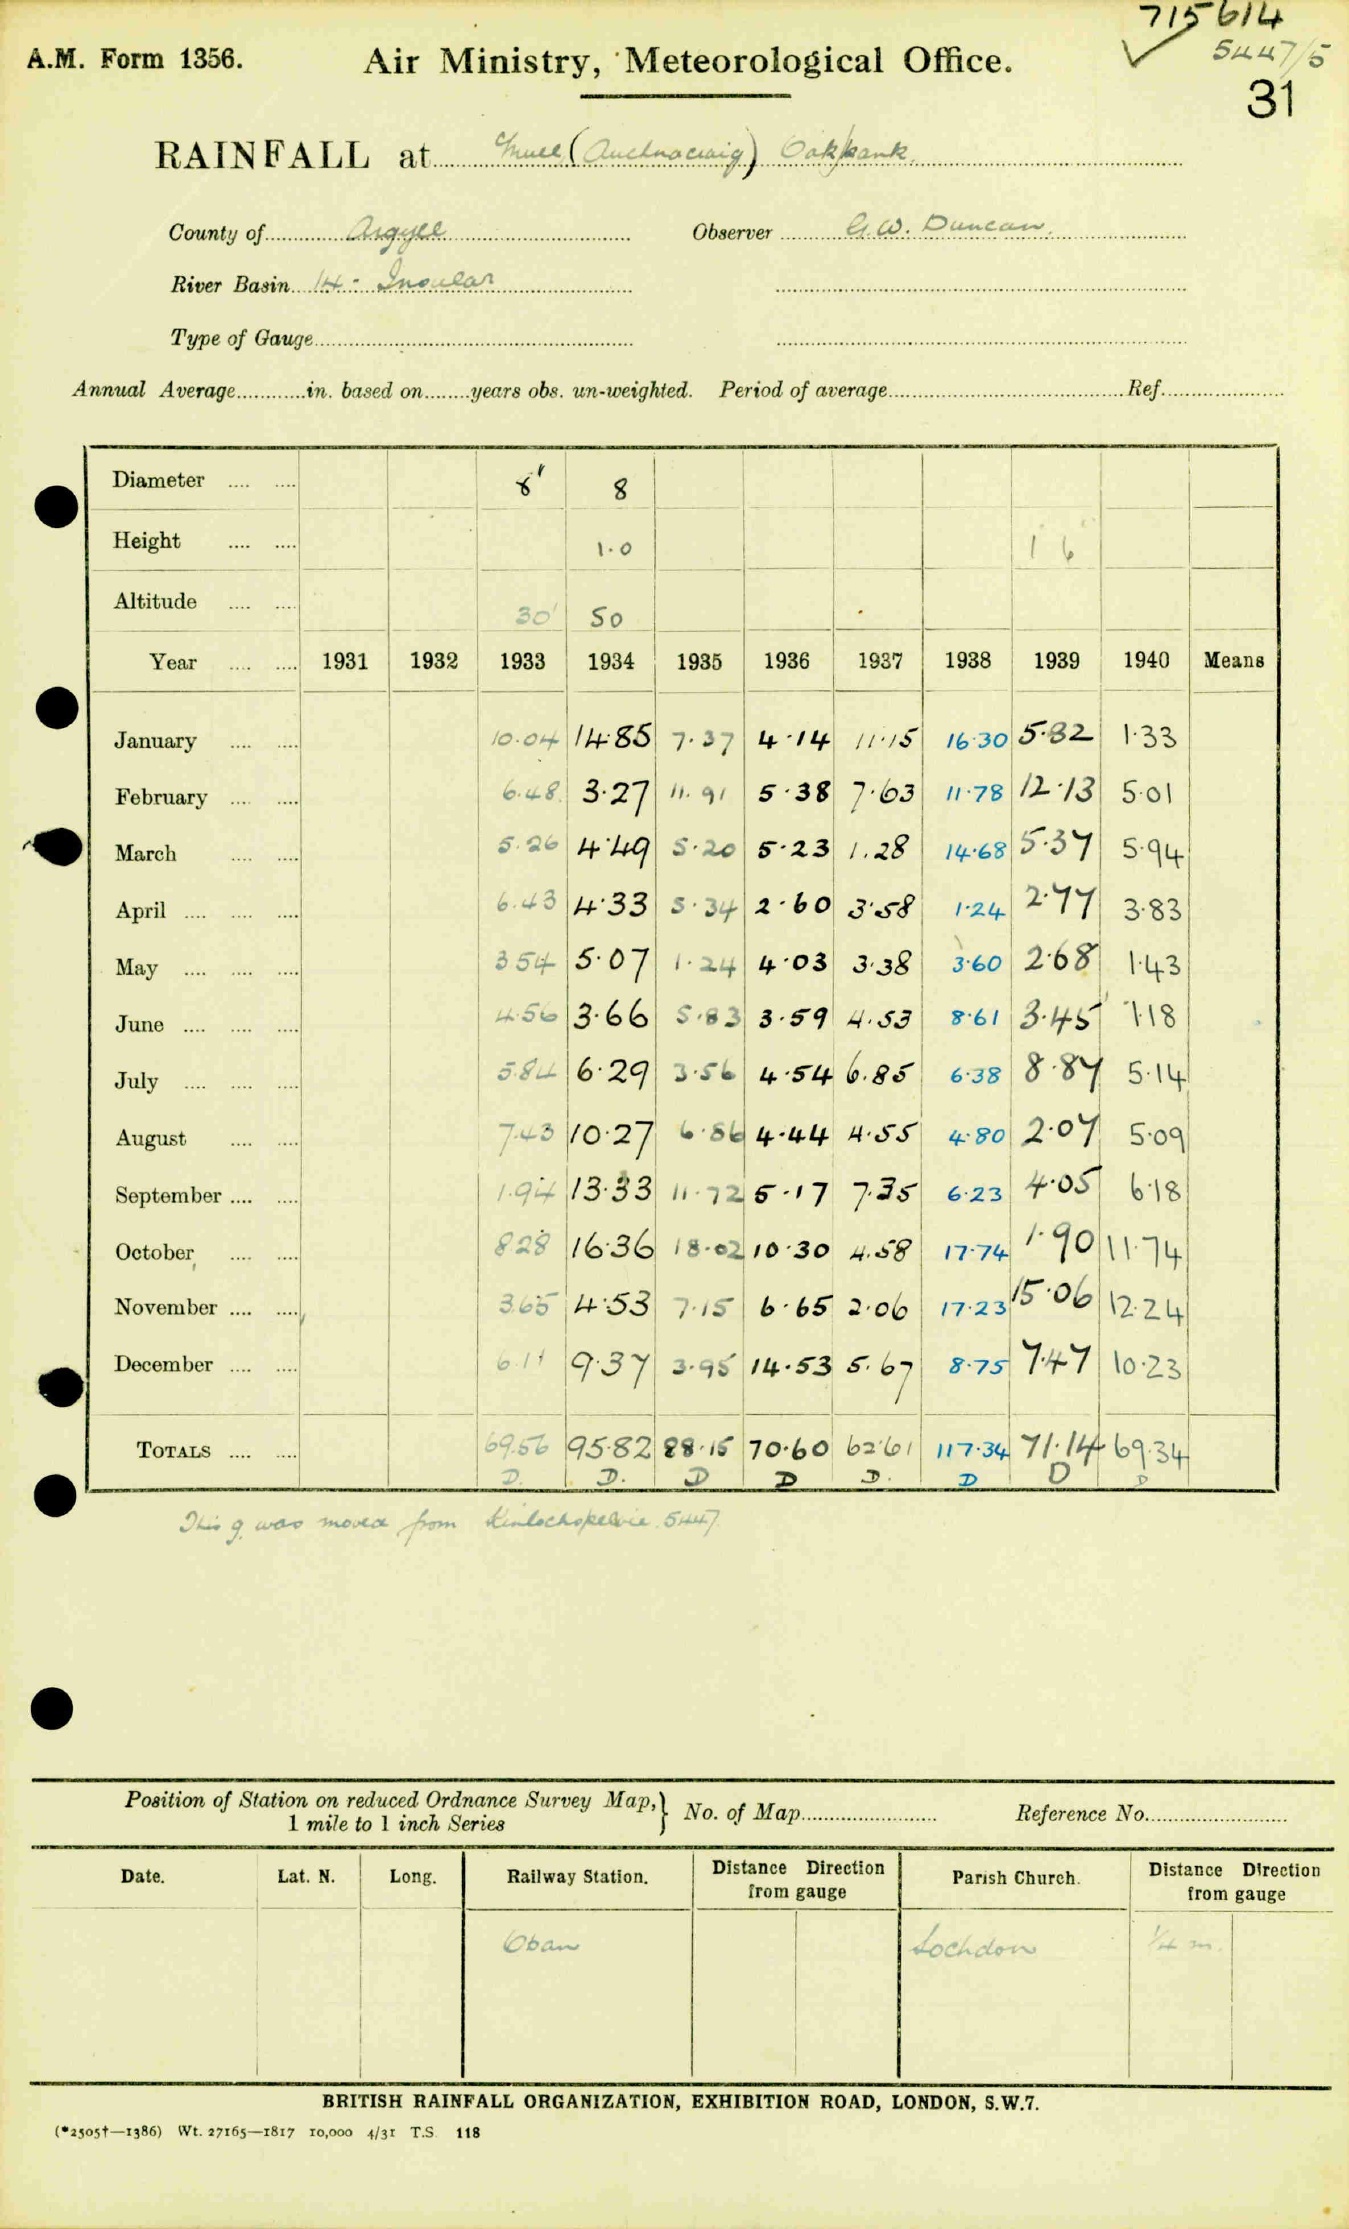 715614
5447/5
31
A.M. Form 1356. Air Ministry, Meteorological Office.
RAINFALL at Mull (Auchnacraig) Oakbank.
County of Argyll Observer G.W. Duncan.
River Basin 14 - Insular
Type of Gauge
Annual Average in. based on years obs. un-weighted. Period of average Ref.
Diameter 8" 8
Height 1.0 1 6"
Altitude 30' 50
Year 1931 1932 1933 1934 1935 1936 1937 1938 1939 1940 Means
January 10.04 14.85 7.37 4.14 11.15 16.30 5.32 1.33
February 6.48 3.27 11.91 5.38 7.63 11.78 12.13 5.01
March 5.26 4.49 5.20 5.23 1.28 14.68 5.37 5.94
April 6.43 4.33 5.34 2.60 3.58 1.24 2.77 3.83
May 3.54 5.07 1.24 4.03 3.38 3.60 2.68 1.43
June 4.56 3.66 5.83 3.59 4.53 8.61 3.45 1.18
July 5.84 6.29 3.56 4.54 6.85 6.38 8.87 5.14
August 7.43 10.27 6.86 4.44 4.55 4.80 2.07 5.09
September 1.94 13.33 11.72 5.17 7.35 6.23 4.05 6.18
October 8.28 16.36 18.02 10.30 4.58 17.74 1.90 11.74
November 3.65 4.53 7.15 6.65 2.06 17.23 15.06 12.24
December 6.11 9.37 3.95 14.53 5.67 8.75 7.47 10.23
TOTALS 69.56 95.82 88.15 70.60 62.61 117.34 71.14 69.34
D. D. D D D. D D D
This g. was moved from Kinlochspelvie 5447
Position of Station on reduced Ordnance Survey Map, } No. of Map Reference No.
1 mile to 1 inch Series
Date. Lat. N. Long. Railway Station. Distance Direction from gauge Parish Church. Distance Direction from gauge
Oban Lochdon ¼ m.
BRITISH RAINFALL ORGANIZATION, EXHIBITION ROAD, LONDON, S.W.7.
(*2505†—1386) Wt. 27165—1817 10,000 4/31 T.S. 118